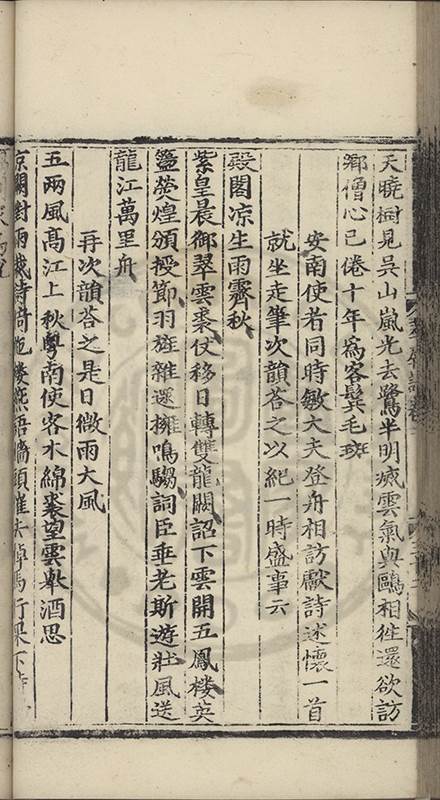 天曉樹見吳山嵐光去鷺半明㓕雲氣與鷗相徃還欲訪
鄰僧心已倦十年爲客鬂毛斑
安南使者同時敏大夫登舟相訪獻詩述懷一首
就坐走筆次韻荅之以紀一時盛事云
殿閣凉生雨霽秋
紫皇晨御翠雲裘仗移日轉雙龍闕詔下雲開五鳳楼英
簜熒煌頒授節羽旌雜遝擁鳴騶詞臣垂老斯遊壯風送
龍江萬里舟
再次韻荅之是日微雨大風
五兩風髙江上秋粤南使客木綿裘望雲擧酒思
京闕對雨裁詩倚柁楼燕語檣頭催去棹馬行